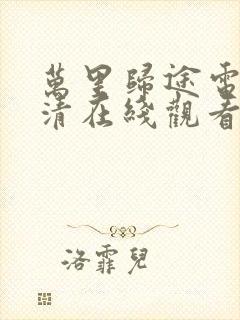 萬里歸途電
清在綫觀看
洛霏兒